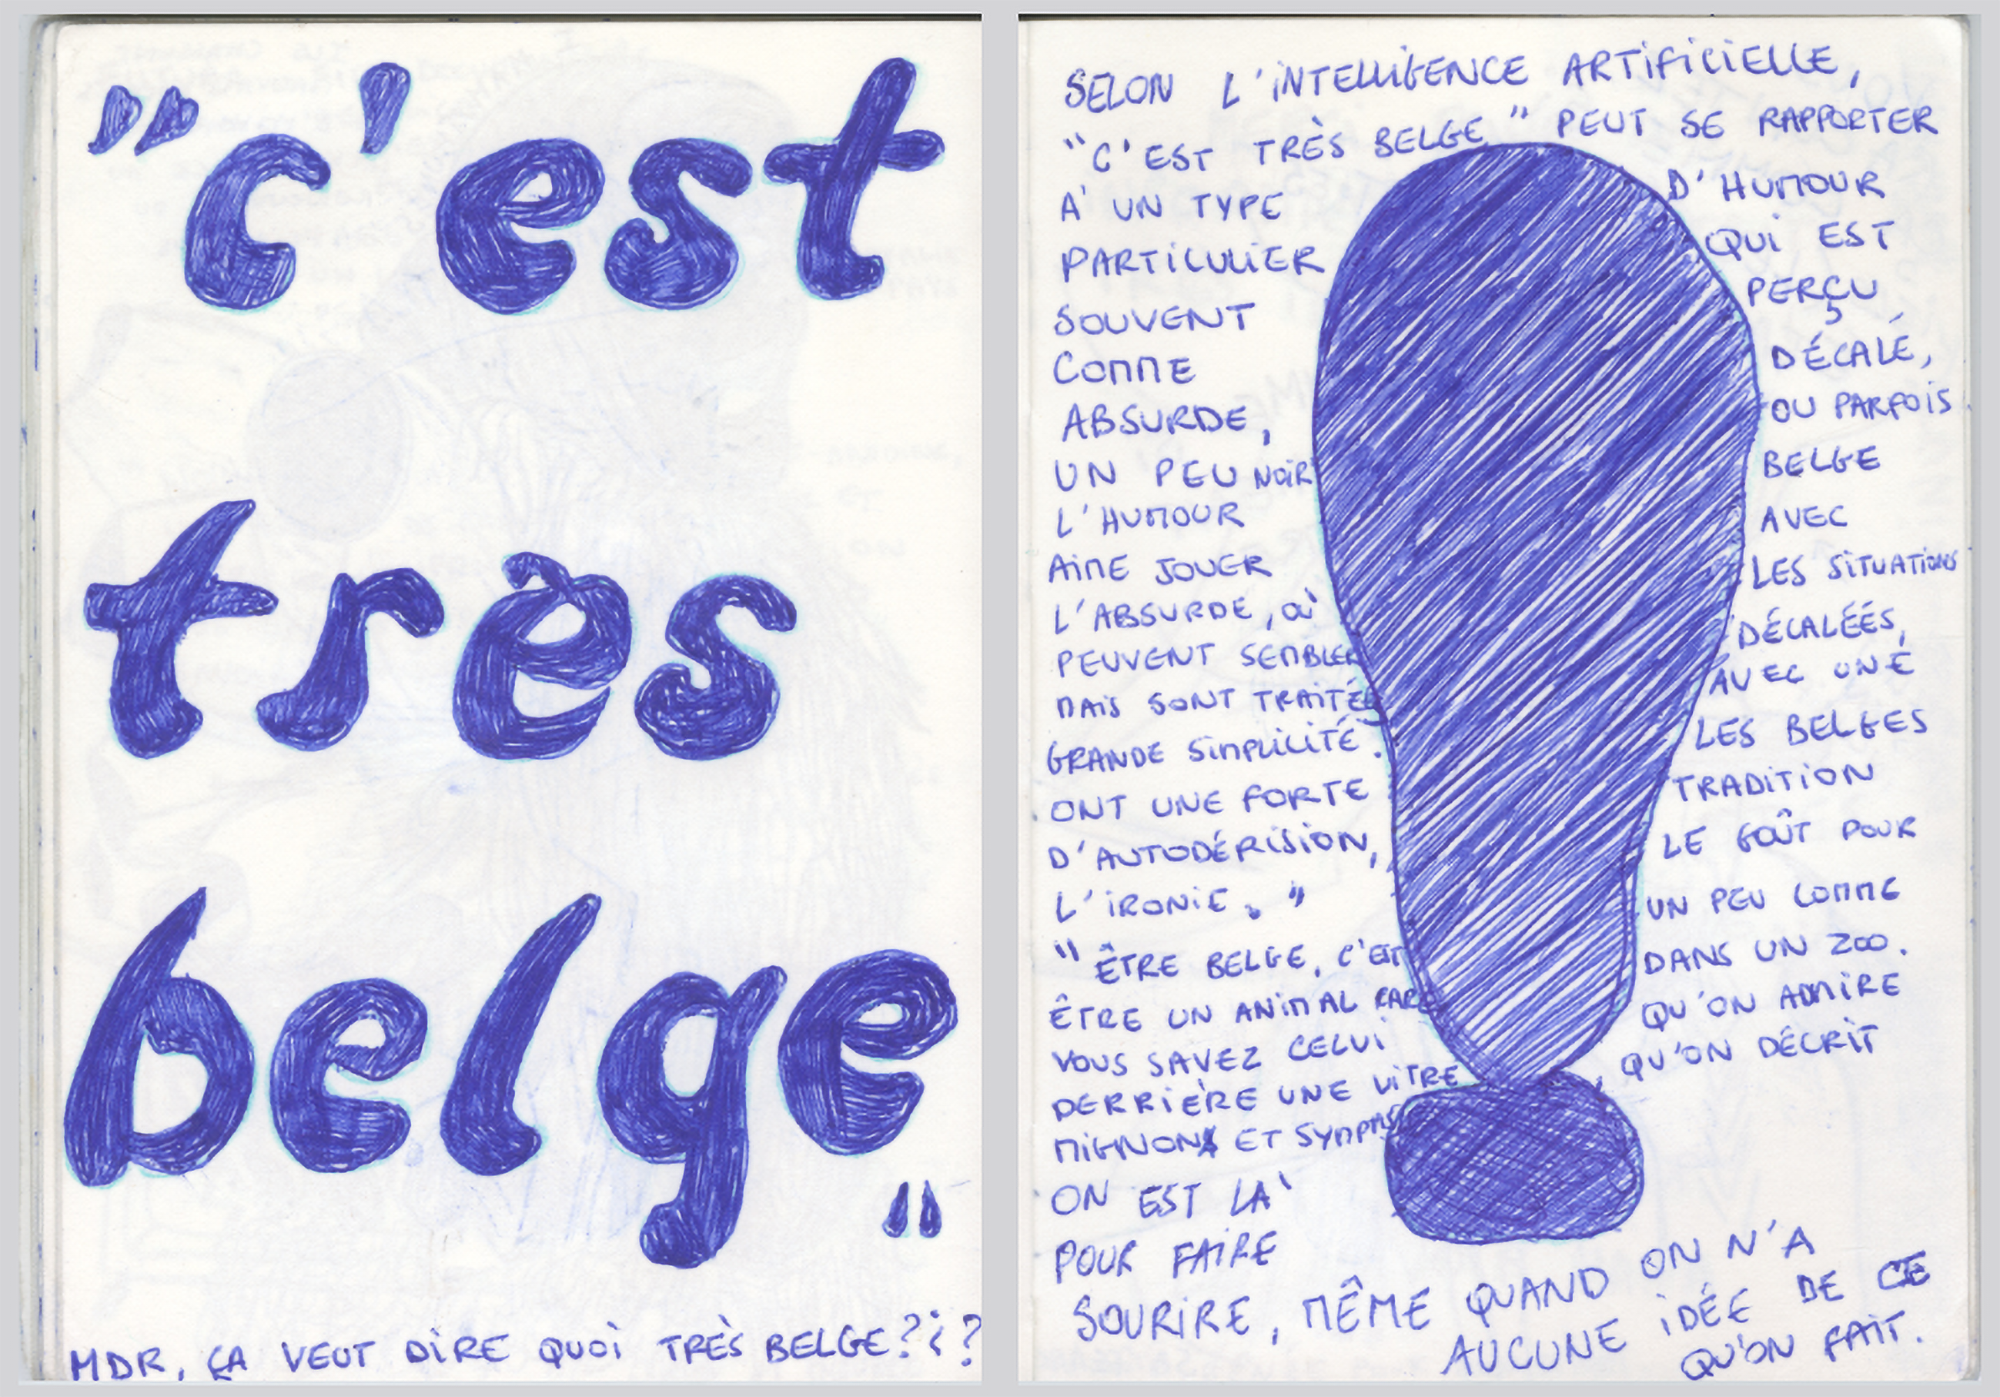 "c'est
très
belge"
MDR, ÇA VEUT DIRE QUOI TRÈS BELGE?¿?
SELON L'INTELLIGENCE ARTIFICIELLE,
"C'EST TRÈS BELGE" PEUT SE RAPPORTER
À UN TYPE D'HUMOUR
PARTICULIER QUI EST
SOUVENT PERÇU
COMME DÉCALÉ,
ABSURDE, OU PARFOIS
UN PEU NOIR
L'HUMOUR BELGE
AIME JOUER AVEC
L'ABSURDE, OÙ LES SITUATIONS
PEUVENT SEMBLER DÉCALÉES,
MAIS SONT TRAITÉS AVEC UNE
GRANDE SIMPLICITÉ. LES BELGES
ONT UNE FORTE TRADITION
D'AUTODÉRISION, LE GOÛT POUR
L'IRONIE."
"ÊTRE BELGE, C'EST UN PEU COMME
ÊTRE UN ANIMAL RARE DANS UN ZOO.
VOUS SAVEZ CELUI QU'ON ADMIRE
DERRIÈRE UNE VITRE, QU'ON DÉCRIT
MIGNON ET SYMPAS
ON EST LÀ
POUR FAIRE
SOURIRE, MÊME QUAND ON N'A
AUCUNE IDÉE DE CE
QU'ON FAIT.